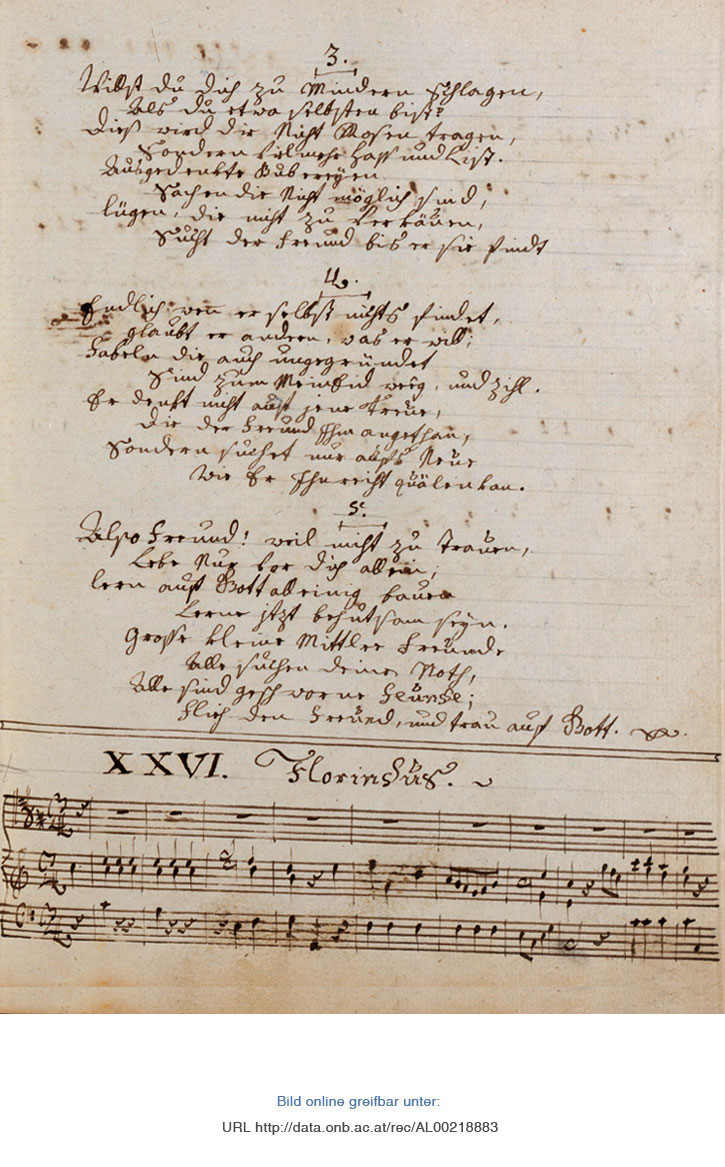 3.
Willst du dich zu Mindern schlagen,
Als du etwa selbsten bist?
Dieß wird dir Nicht Rosen tragen,
Sondern vilmehr Hass und List.
Ausgedenkte Bubereÿen
Sachen die Nicht möglich sind,
lügen, die nicht zu verkäuen,
Sucht der Freund bis er sie findt
4.
Endlich wen̄ er selbst nichts findet,
glaubt er andern, was er will;
Fabeln die auch ungegründet
Sind zum Meineid weeg, und zihl.
Er denkt nicht auf jene Treüe,
die der Freund Ihm angethan,
Sondern suchet nur aufs Neüe
Wie Er Ihn recht quälen kan.
5.
Also Freund! weil nicht zu trauen,
Lebe Nur vor dich allein;
lern auf Gott alleinig bauen
Lerne jtzt behutsam seÿn.
Grosse kleine Mittlre Freunde
Alle suchen deine Noth,
Alle sind geschworne Feünde;
Flieh den Freünd, und trau auf Gott.
XXVI. Florindus.
Bild online greifbar unter:
URL http://data.onb.ac.at/rec/AL00218883